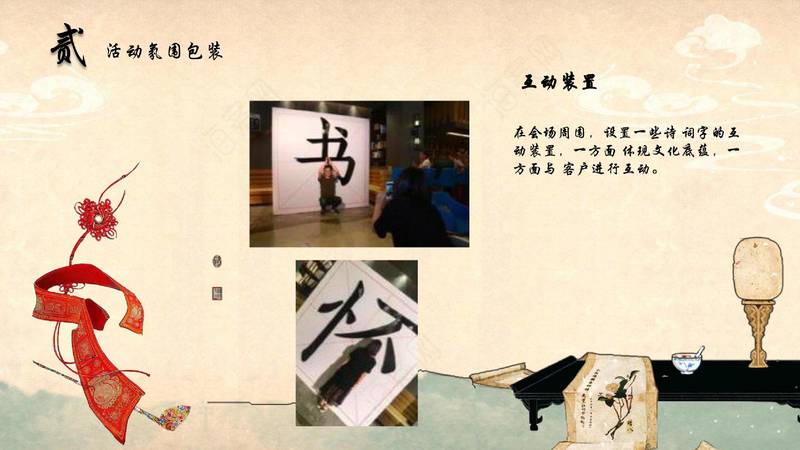 贰 活动氛围包装
互动装置
在会场周围，设置一些诗 词字的互
动装置，一方面 体现文化底蕴，一
方面与 客户进行互动。
书
怀